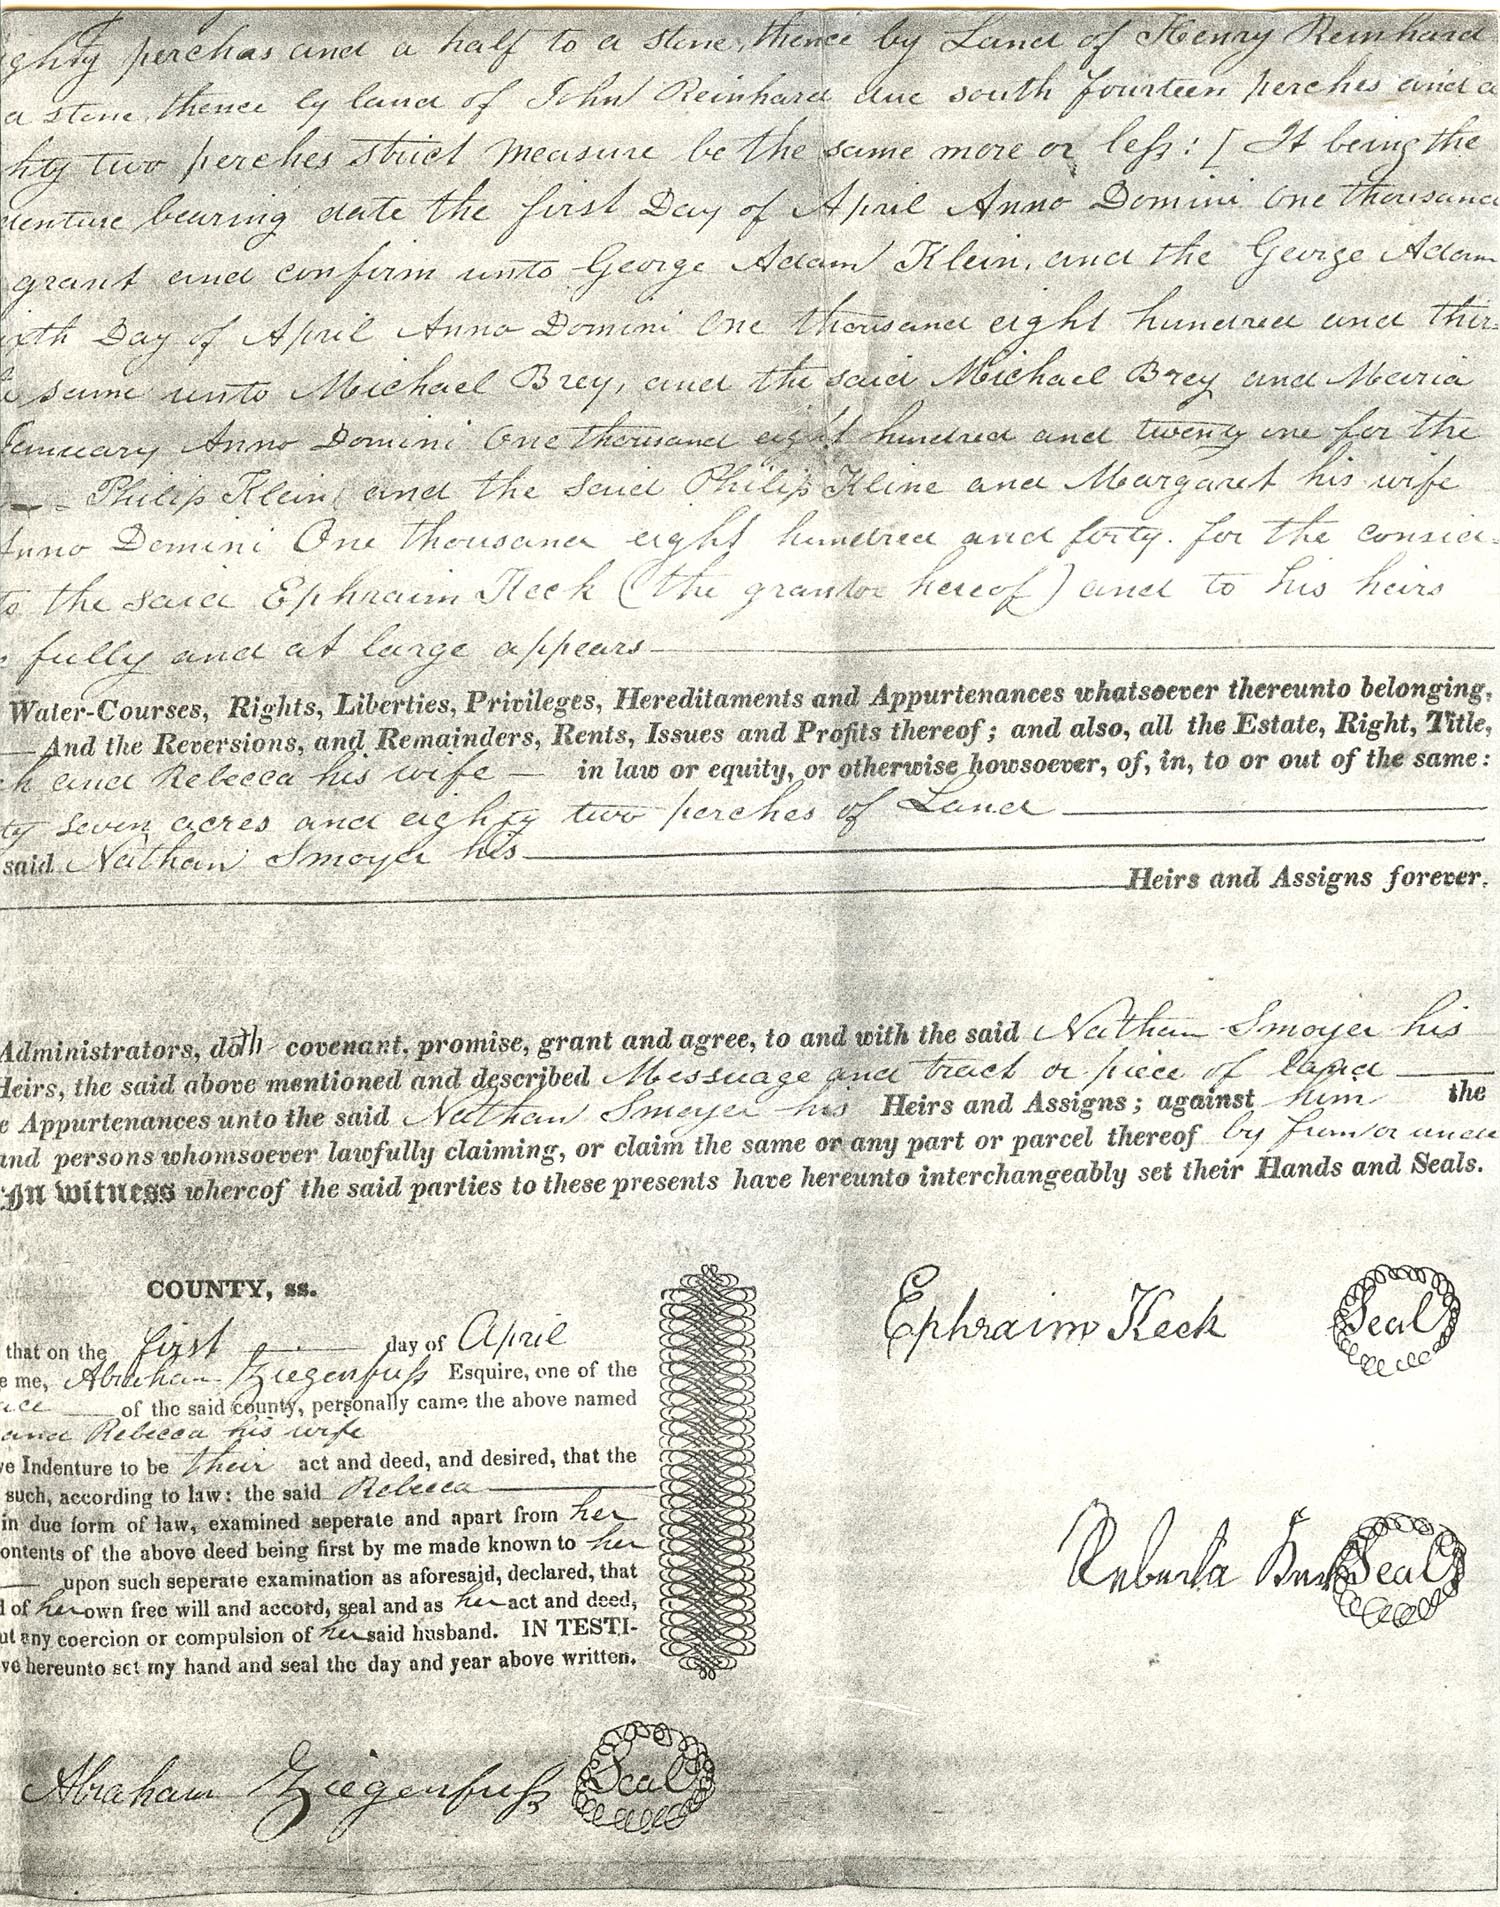 ghty perches and a half to a stone, thence by Land of Henry Reinhard
a stone, thence by land of John Reinhard due south fourteen perches and a
hty two perches strict measure be the same more or less: [ It being the
denture bearing date the first Day of April Anno Domini One thousand
grant and confirm unto George Adam Klein, and the George Adam
ixth Day of April Anno Domini One thousand eight hundred and thir=
same unto Michael Brey, and the said Michael Brey and Maria
January Anno Domini One thousand eight hundred and twenty one for the
Philip Klein, and the said Philip Kline and Margaret his wife
Anno Domini One thousand eight hundred and forty. for the consid=
to the said Ephraim Keck (the grantor hereof) and to his heirs
fully and at large appears
Water-Courses, Rights, Liberties, Privileges, Hereditaments and Appurtenances whatsoever thereunto belonging,
And the Reversions, and Remainders, Rents, Issues and Profits thereof; and also, all the Estate, Right, Title,
and Rebecca his wife — in law or equity, or otherwise howsoever, of, in, to or out of the same:
ty seven acres and eighty two perches of Land
said Nathan Smoyer his
Heirs and Assigns forever.
Administrators, doth covenant, promise, grant and agree, to and with the said Nathan Smoyer his
Heirs, the said above mentioned and described Messuage and tract or piece of land
e Appurtenances unto the said Nathan Smoyer his Heirs and Assigns; against him the
and persons whomsoever lawfully claiming, or claim the same or any part or parcel thereof by from or unde
In witness whereof the said parties to these presents have hereunto interchangeably set their Hands and Seals.
COUNTY, ss.
that on the first day of April
e me, Abraham Ziegenfuß Esquire, one of the
ace of the said county, personally came the above named
and Rebecca his wife
ve Indenture to be their act and deed, and desired, that the
such, according to law: the said Rebecca
in due form of law, examined seperate and apart from her
ontents of the above deed being first by me made known to her
upon such seperate examination as aforesaid, declared, that
d of her own free will and accord, seal and as her act and deed,
ut any coercion or compulsion of her said husband. IN TESTI-
ve hereunto set my hand and seal the day and year above written.
Abraham Ziegenfuß Seal
Ephraim Keck Seal
Seal